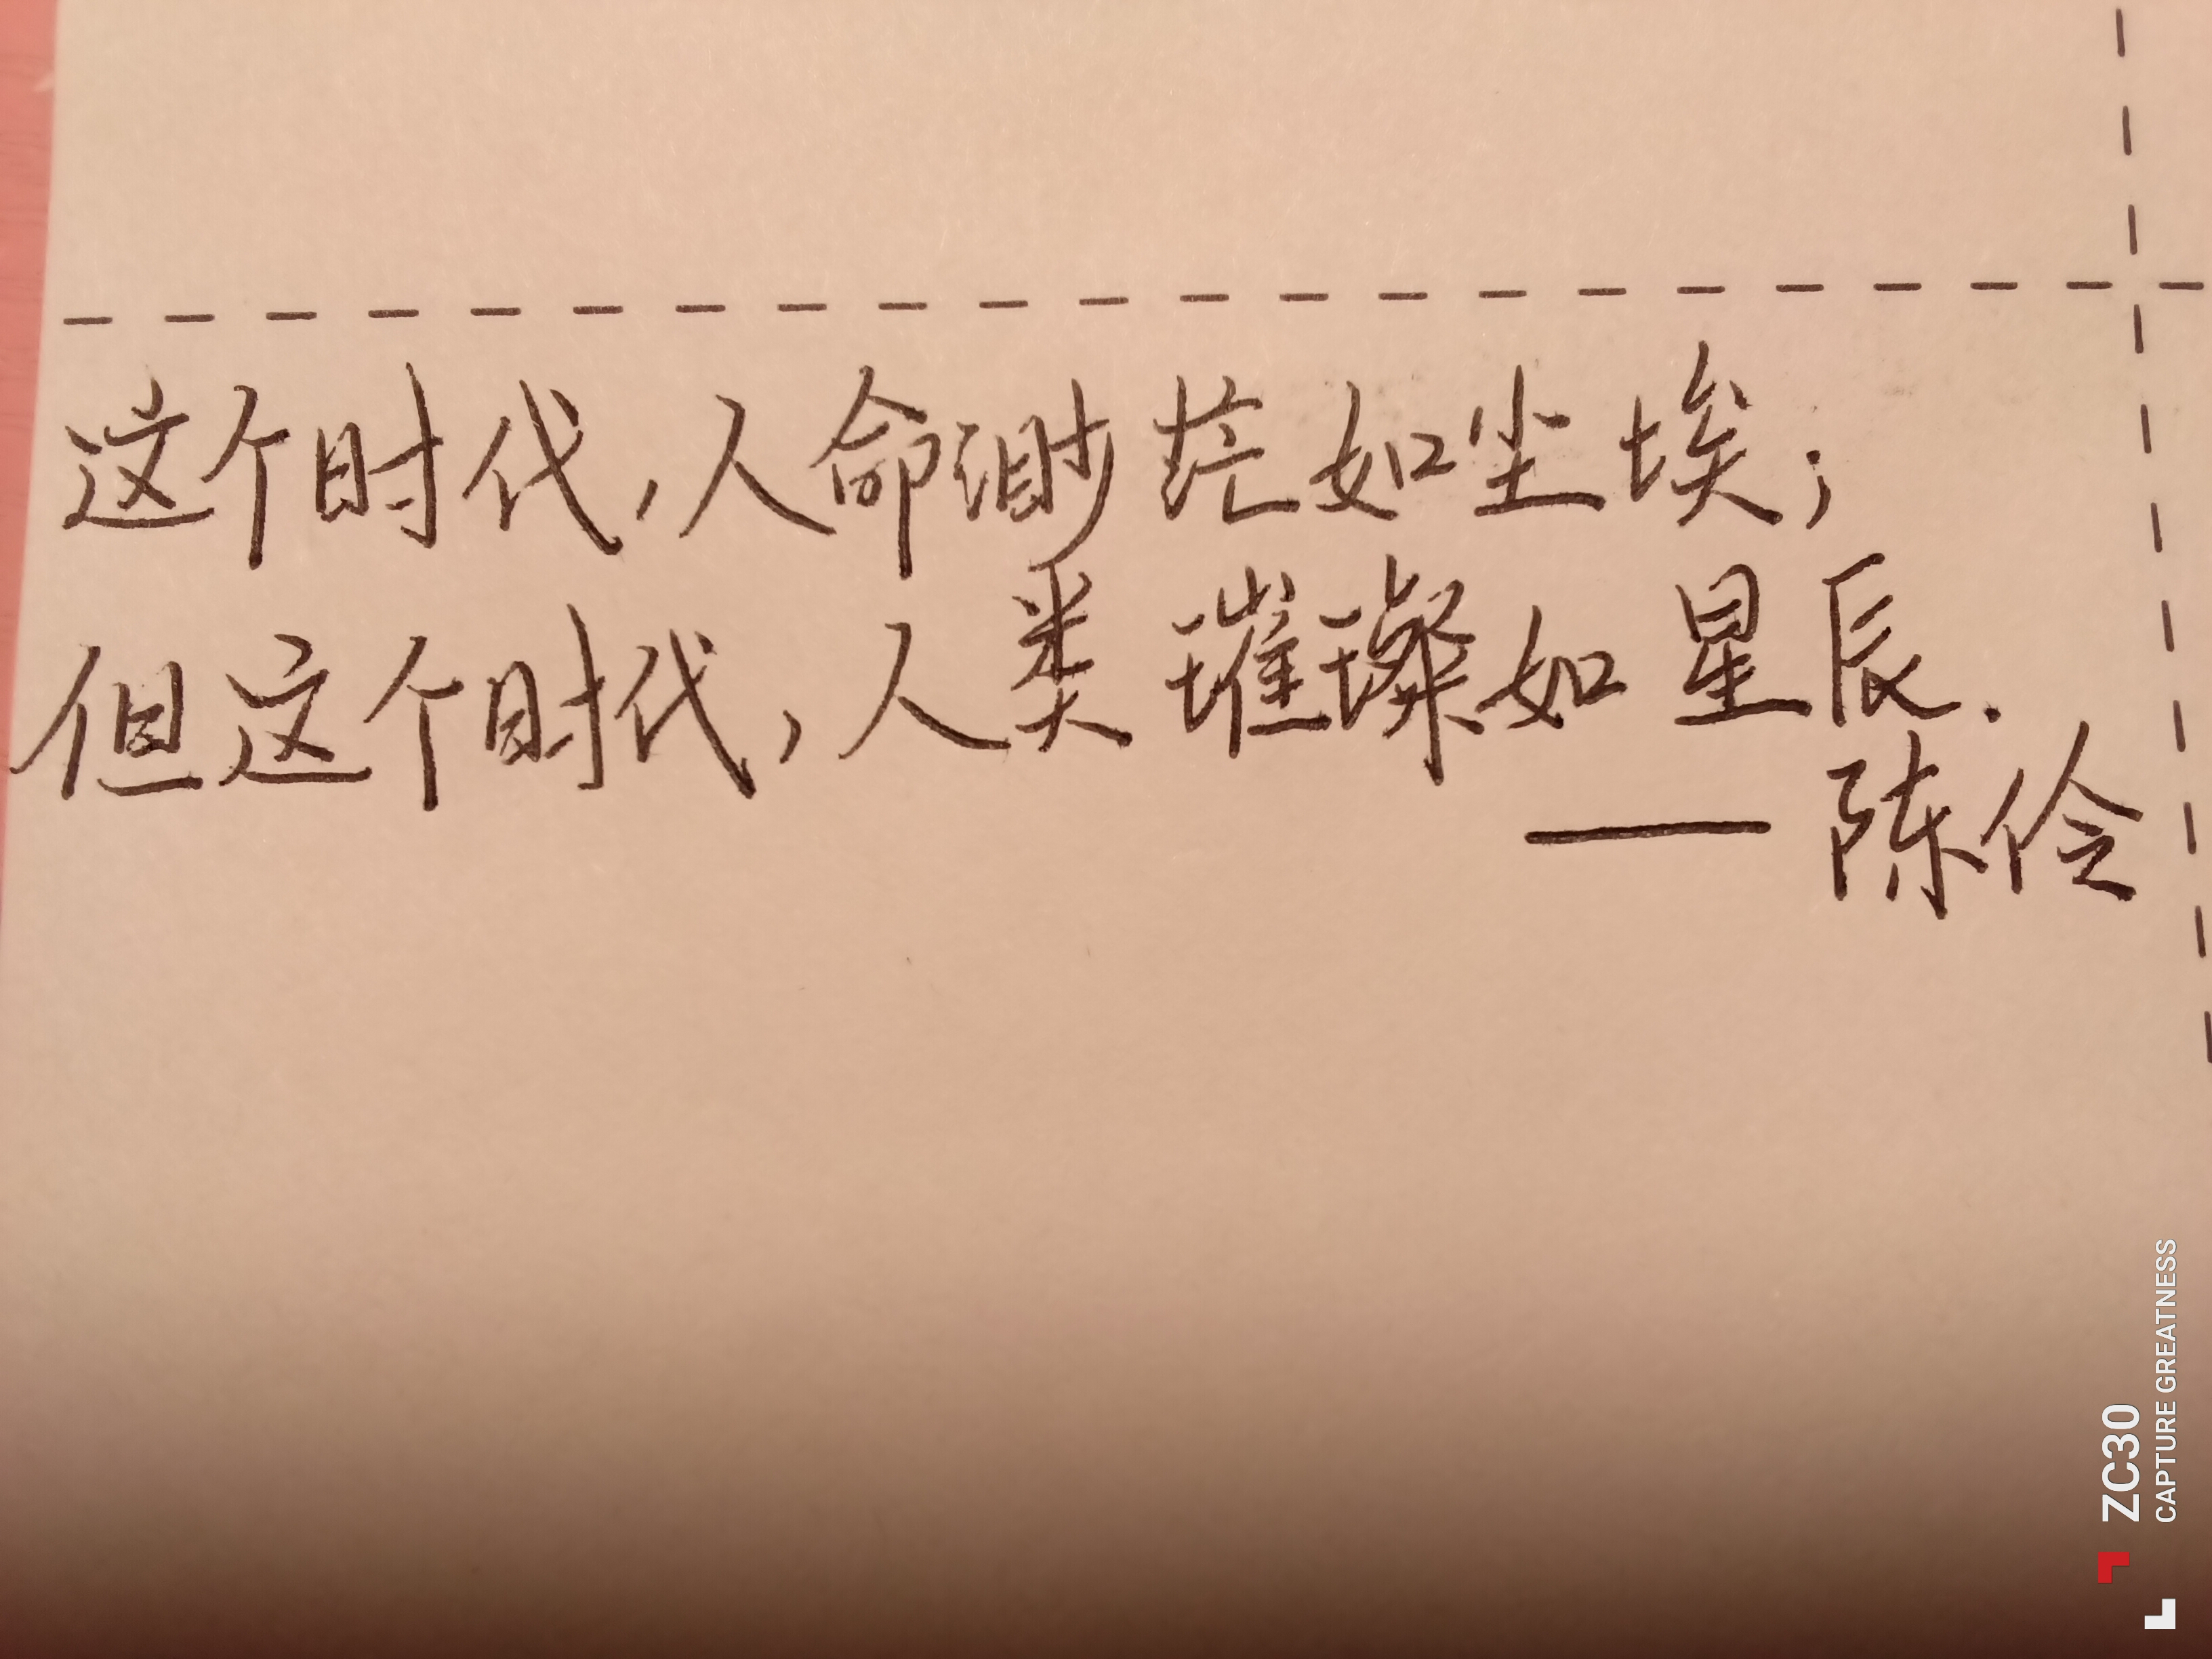 这个时代,人命渺茫如尘埃;
但这个时代,人类璀璨如星辰.
——陈伶
ZC30
CAPTURE GREATNESS